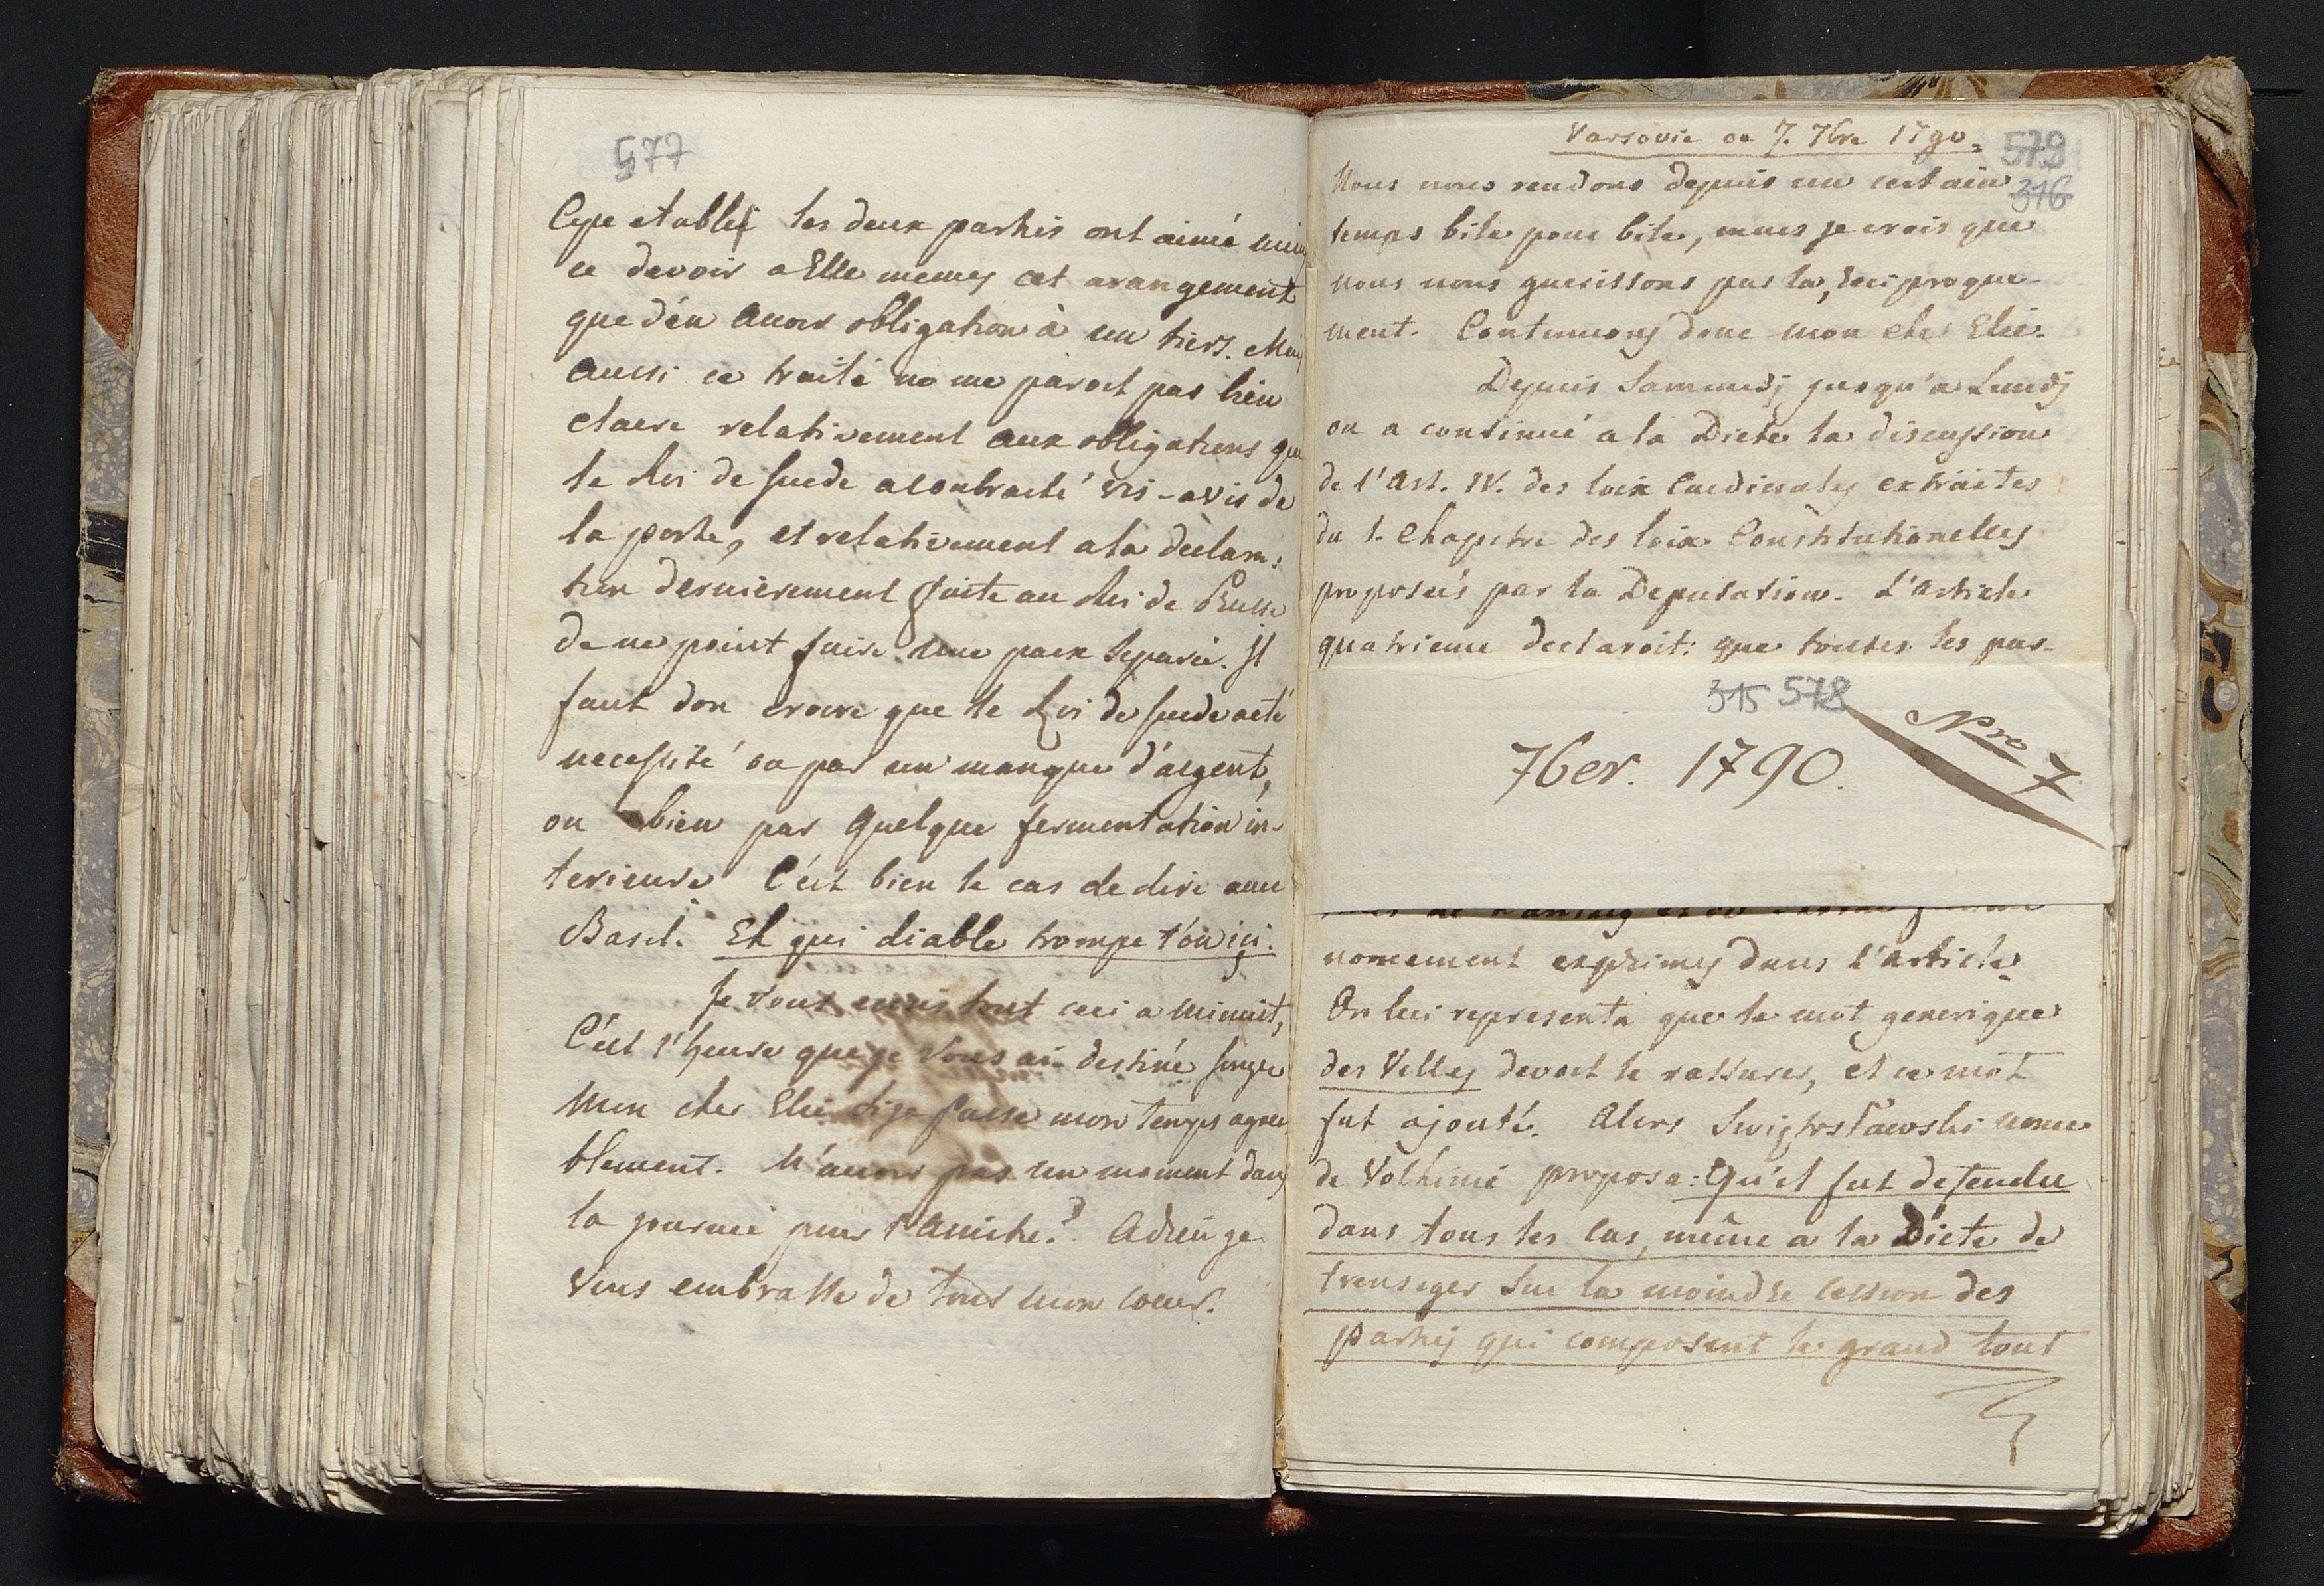 577
Cepe etablis les deux partis ont aimé mieu
ce devoir a Elle memes cet arangement
que d'en avoir obligation à un tiers. Mais
aussi ce traité ne me paroit pas bien
claire relativement aux obligations que
le Roi de Suede a contracté vis-avis de
la porte, et relativement a la declara:
tion dernierement faite au Roi de Prusse
de ne point faire une paix separée. Il
faut don croire que le Roi de Suede a eté
necessité ou par un manque d'argent,
ou bien par quelque fermentation in-
terieure C'est bien le cas de dire avec
Basil. Eh qui diable trompe t'on ici.
Je Vous ecris tout ceci a minuit,
C'est l'heure que je Vous ai destiné jugez
Mon cher Elie si je passe mon temps agrea
blement. N'avoir pas un moment dans
la journée pour l'Amitie? Adieu je
Vous embrasse de tout mon coeur.
Varsovie ce 7. 7bre 1790.
579
316
Nous nous rendons depuis un certain
temps bile pour bile, mais je crois que
nous nous guerissons par la, reciproque-
ment. Continuons donc mon cher Elie.
Depuis Sammedj jusqu'a Lundj
on a continué a la Diete la discussion
de l'Art. IV. des loix Cardinales extraites
du 1. Chapitre des loix Constitutionelles
proposeés par la Deputation. L'Article
quatrieme declaroit: que toutes les par-
315 578
Nro 7
7ber. 1790.
nomement exprimes dans l'Article
On lui representa que le mot generique
des Villes devoit le rassurer, et ce mot
fut ajouté. Alors Swiętosławski nonce
de Volhinie proposa: Qu'il fut defendu
dans tous les cas, même a la Diete de
transiger sur la moindre cession des
partis qui composent le grand tout